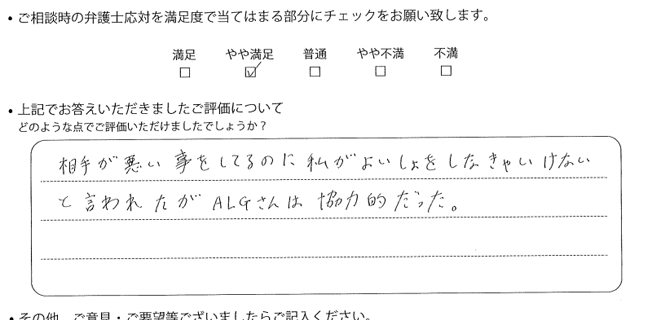 • ご相談時の弁護士応対を満足度で当てはまる部分にチェックをお願い致します。
満足 やや満足 普通 やや不満 不満
□ ☑ □ □ □
• 上記でお答えいただきましたご評価について
どのような点でご評価いただけましたでしょうか？
相手が悪い事をしてるのに私がよいしょをしたきゃいけない
と言われたがALGさんは協力的だった。
• その他、ご意見・ご要望等ございましたらご記入ください。